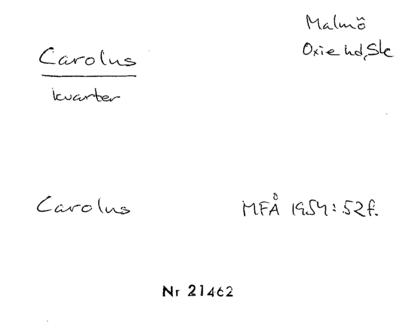 Malmö
Oxie hd, Sk
Carolus
kvarter
Carolus MFÅ 1954:52f.
Nr 21462